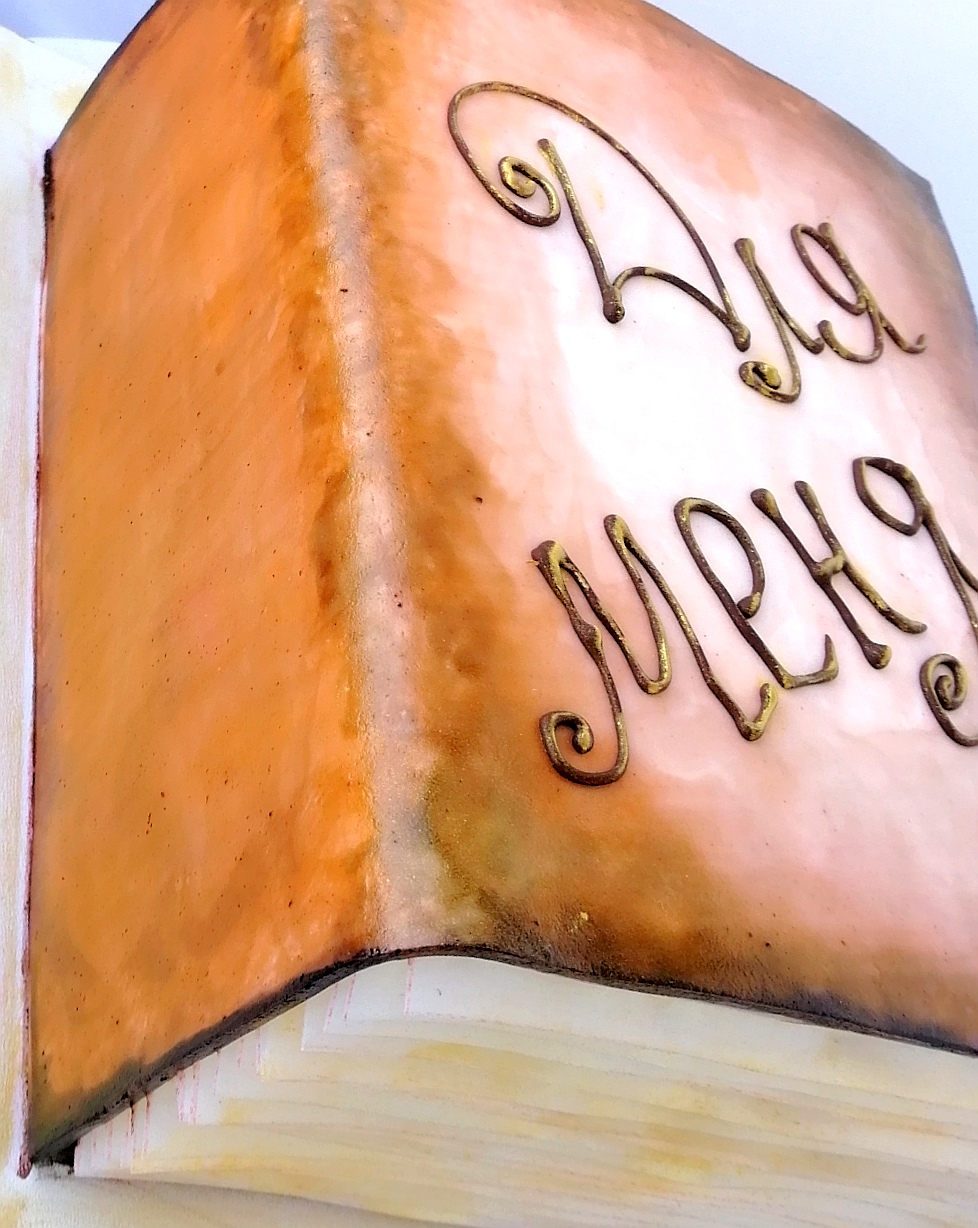 Для
меня